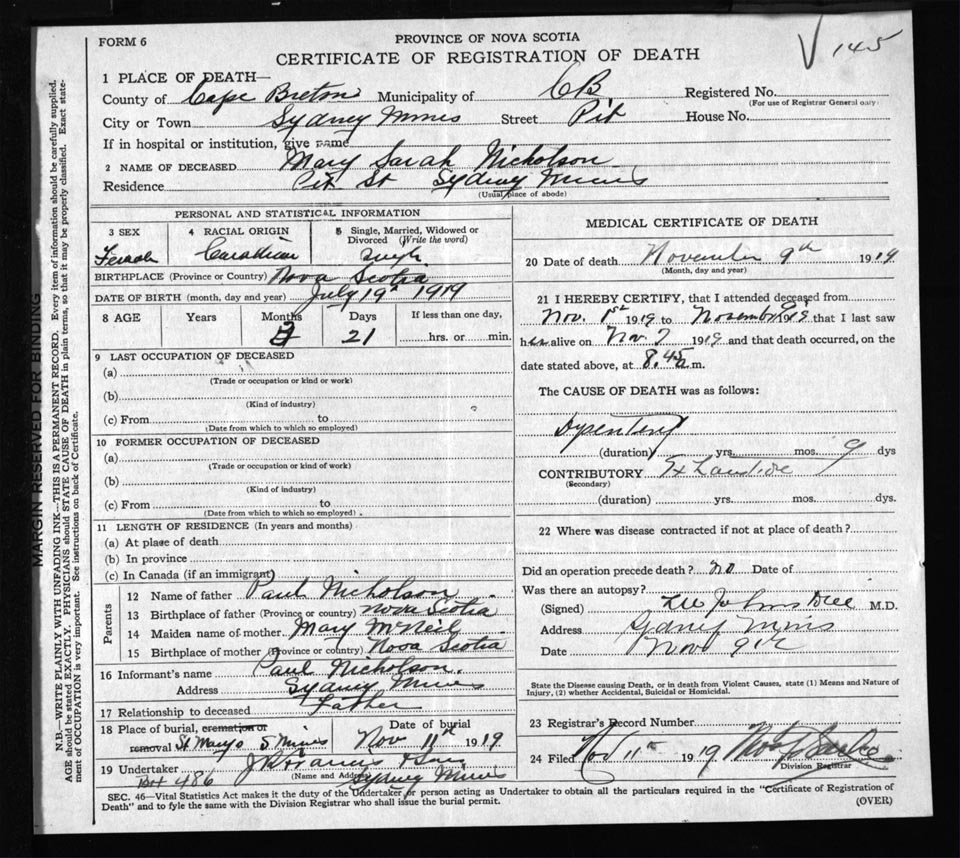 FORM 6
PROVINCE OF NOVA SCOTIA
CERTIFICATE OF REGISTRATION OF DEATH
V 145
1 PLACE OF DEATH—
County of Cape Breton Municipality of CB Registered No.
(For use of Registrar General only)
City or Town Sydney Mines Street Pit House No.
If in hospital or institution, give name
2 NAME OF DECEASED Mary Sarah Nicholson
Residence Pit St Sydney Mines
(Usual place of abode)
PERSONAL AND STATISTICAL INFORMATION
3 SEX 4 RACIAL ORIGIN 5 Single, Married, Widowed or Divorced (Write the word)
Female Canadian Single
BIRTHPLACE (Province or Country) Nova Scotia
DATE OF BIRTH (month, day and year) July 19 1919
8 AGE Years Months Days If less than one day,
3 21 hrs. or min.
9 LAST OCCUPATION OF DECEASED
(a)
(Trade or occupation or kind or work)
(b)
(Kind of industry)
(c) From to
(Date from which to which so employed)
10 FORMER OCCUPATION OF DECEASED
(a)
(Trade or occupation or kind or work)
(b)
(Kind of industry)
(c) From to
(Date from which to which so employed)
11 LENGTH OF RESIDENCE (In years and months)
(a) At place of death
(b) In province
(c) In Canada (if an immigrant)
Parents
12 Name of father Paul Nicholson
13 Birthplace of father (Province or country) Nova Scotia
14 Maiden name of mother Mary McNeil
15 Birthplace of mother (Province or country) Nova Scotia
16 Informant's name Paul Nicholson
Address Sydney Mines
17 Relationship to deceased Father
18 Place of burial, cremation or removal St Marys S Mines
Date of burial Nov 11th 1919
19 Undertaker & Sons
(Name and Address) Sydney Mines
BH 486
MEDICAL CERTIFICATE OF DEATH
20 Date of death November 9th 1919
(Month, day and year)
21 I HEREBY CERTIFY, that I attended deceased from
Nov. 1st 1919 to November 9 1919 that I last saw
her alive on Nov 7 1919 and that death occurred, on the
date stated above, at 8.45 a.m.
The CAUSE OF DEATH was as follows:
Dysentery
(duration) yrs. mos. 9 dys
CONTRIBUTORY
(Secondary)
(duration) yrs. mos. dys.
22 Where was disease contracted if not at place of death?
Did an operation precede death? no Date of
Was there an autopsy?
(Signed) M.D.
Address Sydney Mines
Date Nov 9th
State the Disease causing Death, or in death from Violent Causes, state (1) Means and Nature of
Injury, (2) whether Accidental, Suicidal or Homicidal.
23 Registrar's Record Number
24 Filed Nov 11th 1919
Division Registrar
SEC. 46—Vital Statistics Act makes it the duty of the Undertaker or person acting as Undertaker to obtain all the particulars required in the "Certificate of Registration of
Death" and to fyle the same with the Division Registrar who shall issue the burial permit.
(OVER)
MARGIN RESERVED FOR BINDING
N.B.—WRITE PLAINLY WITH UNFADING INK—THIS IS A PERMANENT RECORD. Every item of information should be carefully supplied.
AGE should be stated EXACTLY. PHYSICIANS should STATE CAUSE OF DEATH in plain terms, so that it may be properly classified. Exact statement of OCCUPATION is very important. See instructions on back of Certificate.